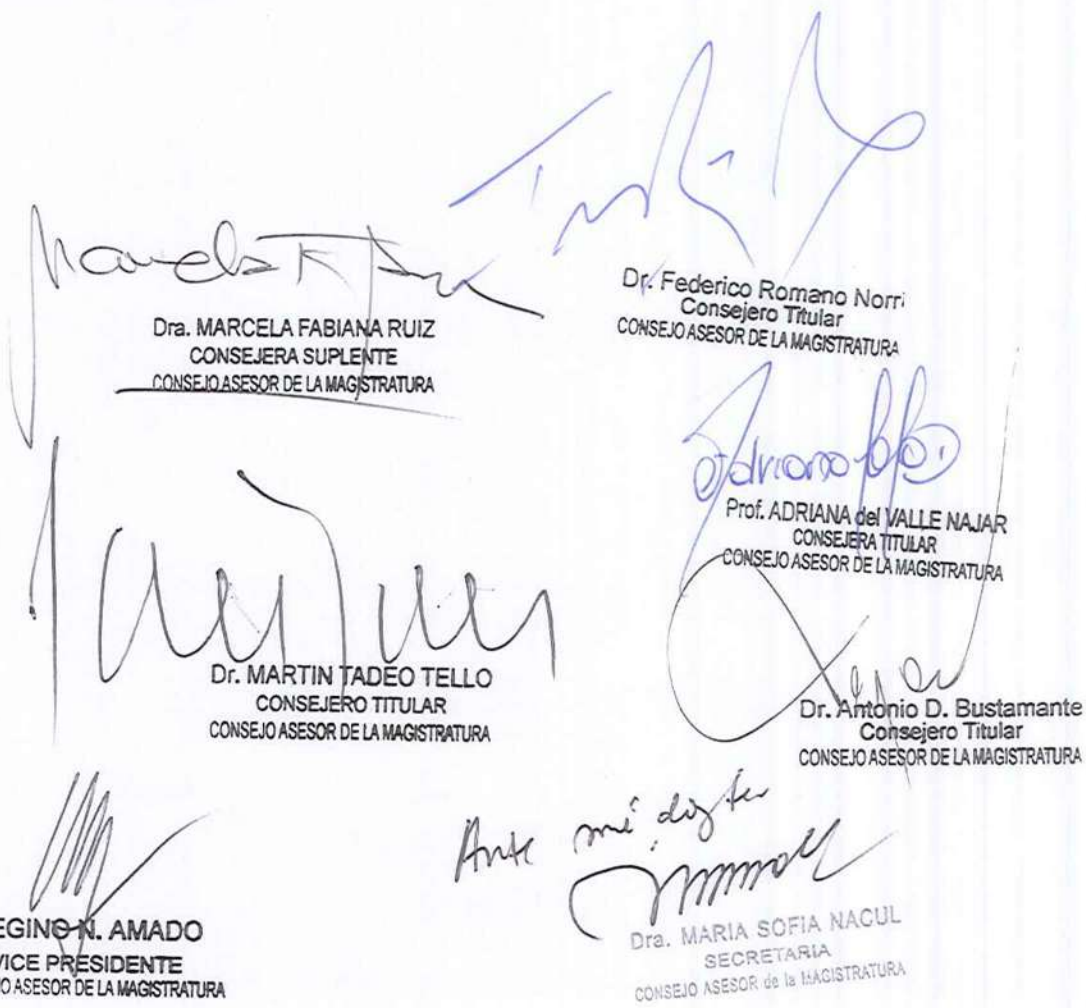 Dra. MARCELA FABIANA RUIZ
CONSEJERA SUPLENTE
CONSEJO ASESOR DE LA MAGISTRATURA
Dr. Federico Romano Norri
Consejero Titular
CONSEJO ASESOR DE LA MAGISTRATURA
Prof. ADRIANA del VALLE NAJAR
CONSEJERA TITULAR
CONSEJO ASESOR DE LA MAGISTRATURA
Dr. MARTIN TADEO TELLO
CONSEJERO TITULAR
CONSEJO ASESOR DE LA MAGISTRATURA
Dr. Antonio D. Bustamante
Consejero Titular
CONSEJO ASESOR DE LA MAGISTRATURA
EGINO N. AMADO
VICE PRESIDENTE
O ASESOR DE LA MAGISTRATURA
Ante mí doy fe
Dra. MARIA SOFIA NACUL
SECRETARIA
CONSEJO ASESOR de la MAGISTRATURA